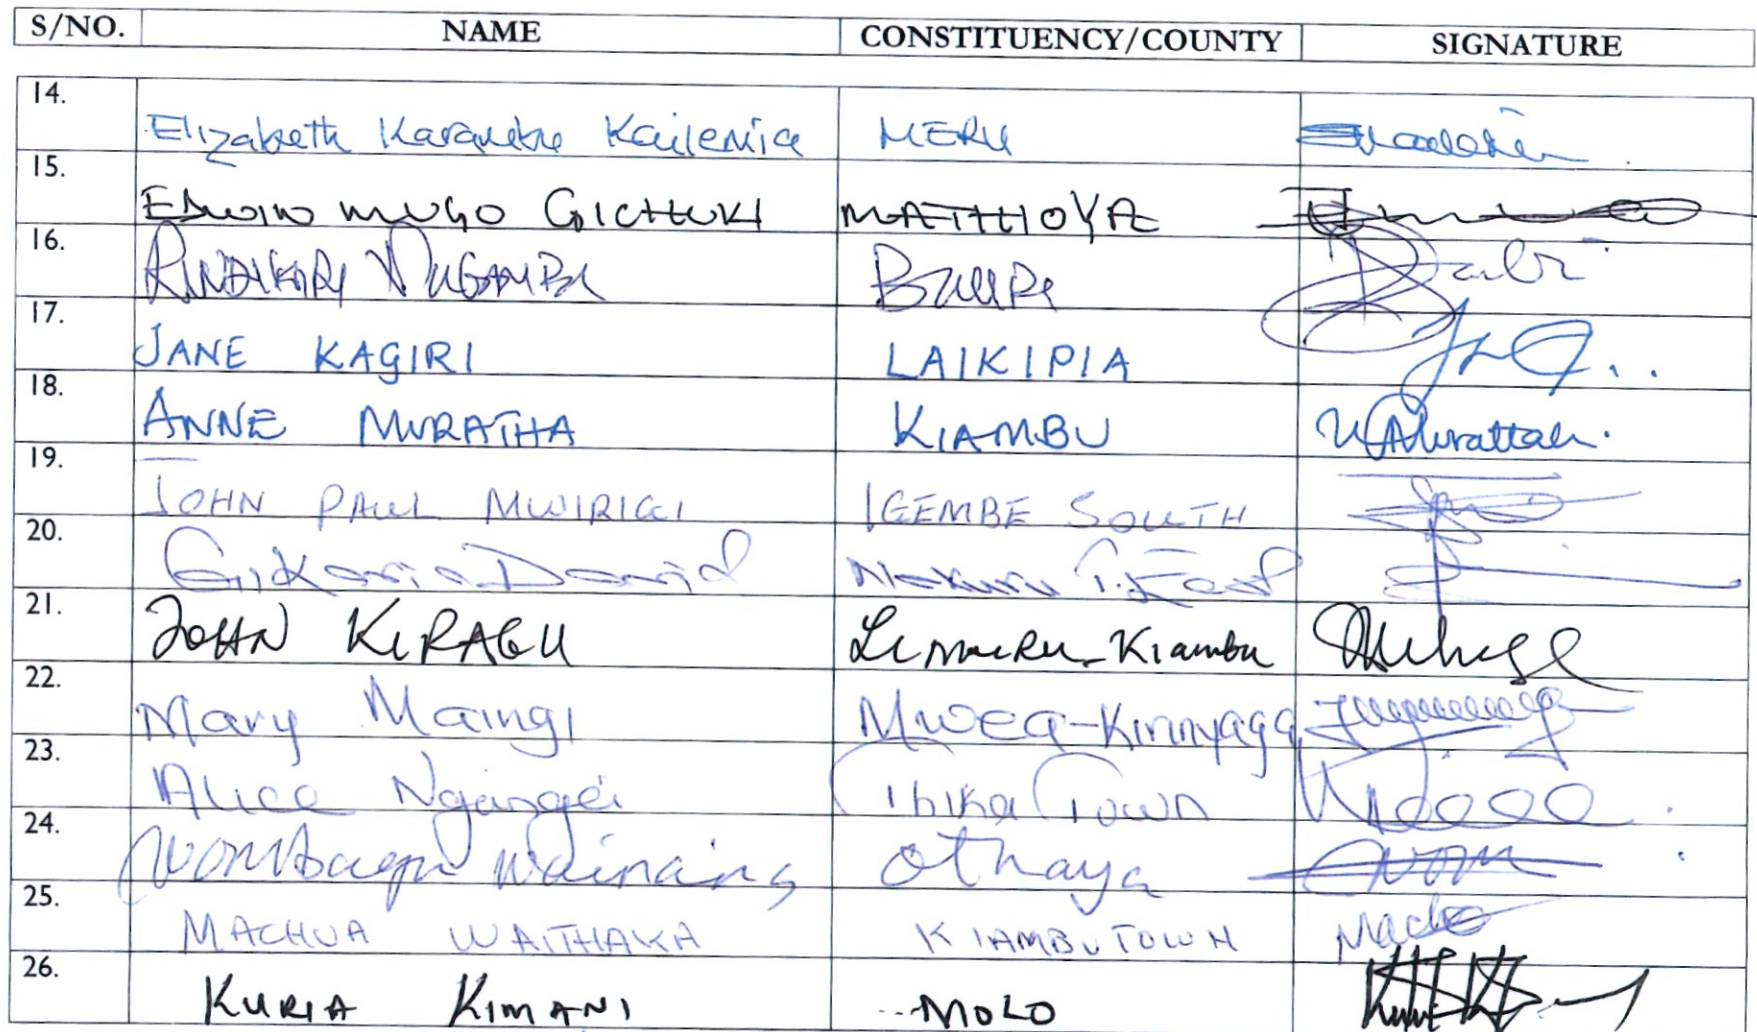 S/NO. NAME CONSTITUENCY/COUNTY SIGNATURE
14. Elizabeth Karambu Kailemia MERU
15. EDWIN MUGO GICHUKI MATHIOYA
16. RINDIKIRI MUGAMBI BUURI
17. JANE KAGIRI LAIKIPIA
18. ANNE MURATHA KIAMBU
19. JOHN PAUL MWIRIGI IGEMBE SOUTH
20. Gikaria David Nakuru T. East
21. JOHN KIRAGU Limuru-Kiambu
22. Mary Maingi Mwea-Kirinyaga
23. Alice Ng'ang'a Thika Town
24. Wambugu Wainaina Othaya
25. MACHUA WAITHAKA KIAMBU TOWN
26. KURIA KIMANI MOLO